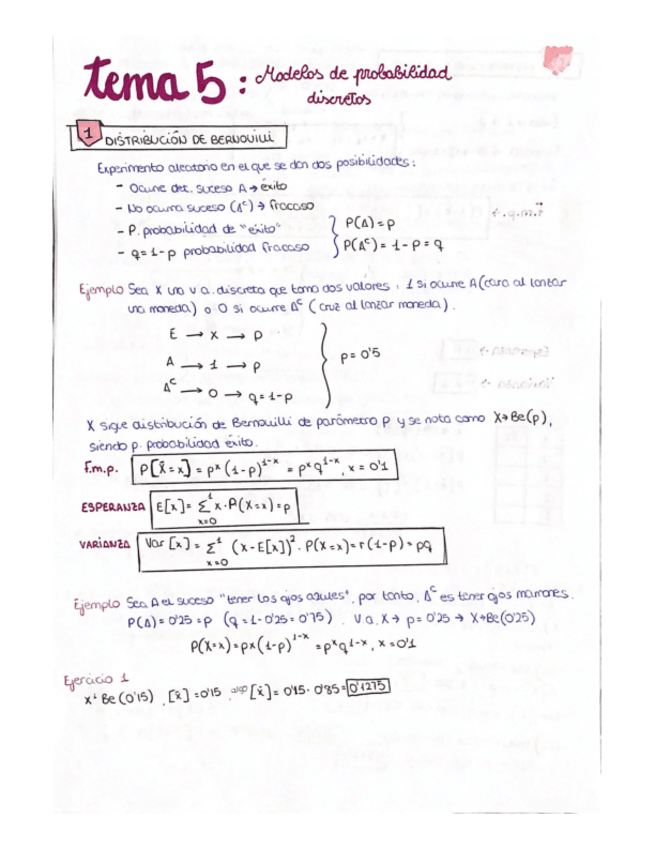 tema 5: Modelos de probabilidad
discretos
1 DISTRIBUCIÓN DE BERNOUILLI
Experimento aleatorio en el que se dan dos posibilidades:
- Ocurre det. suceso A → éxito
- No ocurra suceso (Aᶜ) → fracaso
- P. probabilidad de "éxito"
- q = 1 - p probabilidad fracaso
P(A) = p
P(Aᶜ) = 1 - p = q
Ejemplo Sea X una v.a. discreta que toma dos valores: 1 si ocurre A (cara al lanzar
una moneda) o 0 si ocurre Aᶜ (cruz al lanzar moneda).
E → X → p
A → 1 → p
Aᶜ → 0 → q = 1-p
p = 0'5
X sigue distribución de Bernouilli de parámetro p y se nota como X→Be(p),
siendo p. probabilidad éxito.
f.m.p. P[X=x] = pˣ (1-p)¹⁻ˣ = pˣ q¹⁻ˣ, x = 0'1
ESPERANZA E[x] = Σ¹ x=0 x · P(X=x) = p
VARIANZA Var [x] = Σ¹ x=0 (x - E[x])² · P(X=x) = r(1-p) = pq
Ejemplo Sea A el suceso "tener los ojos azules", por tanto, Aᶜ es tener ojos marrones.
P(A) = 0'25 = p (q = 1 - 0'25 = 0'75). V.a. X → p = 0'25 → X→Be(0'25)
P(X=x) = px (1-p)¹⁻ˣ = pˣ q¹⁻ˣ, x = 0'1
Ejercicio 1
Be (0'15), [x] = 0'15, [x] = 0'15 · 0'85 = 0'1275